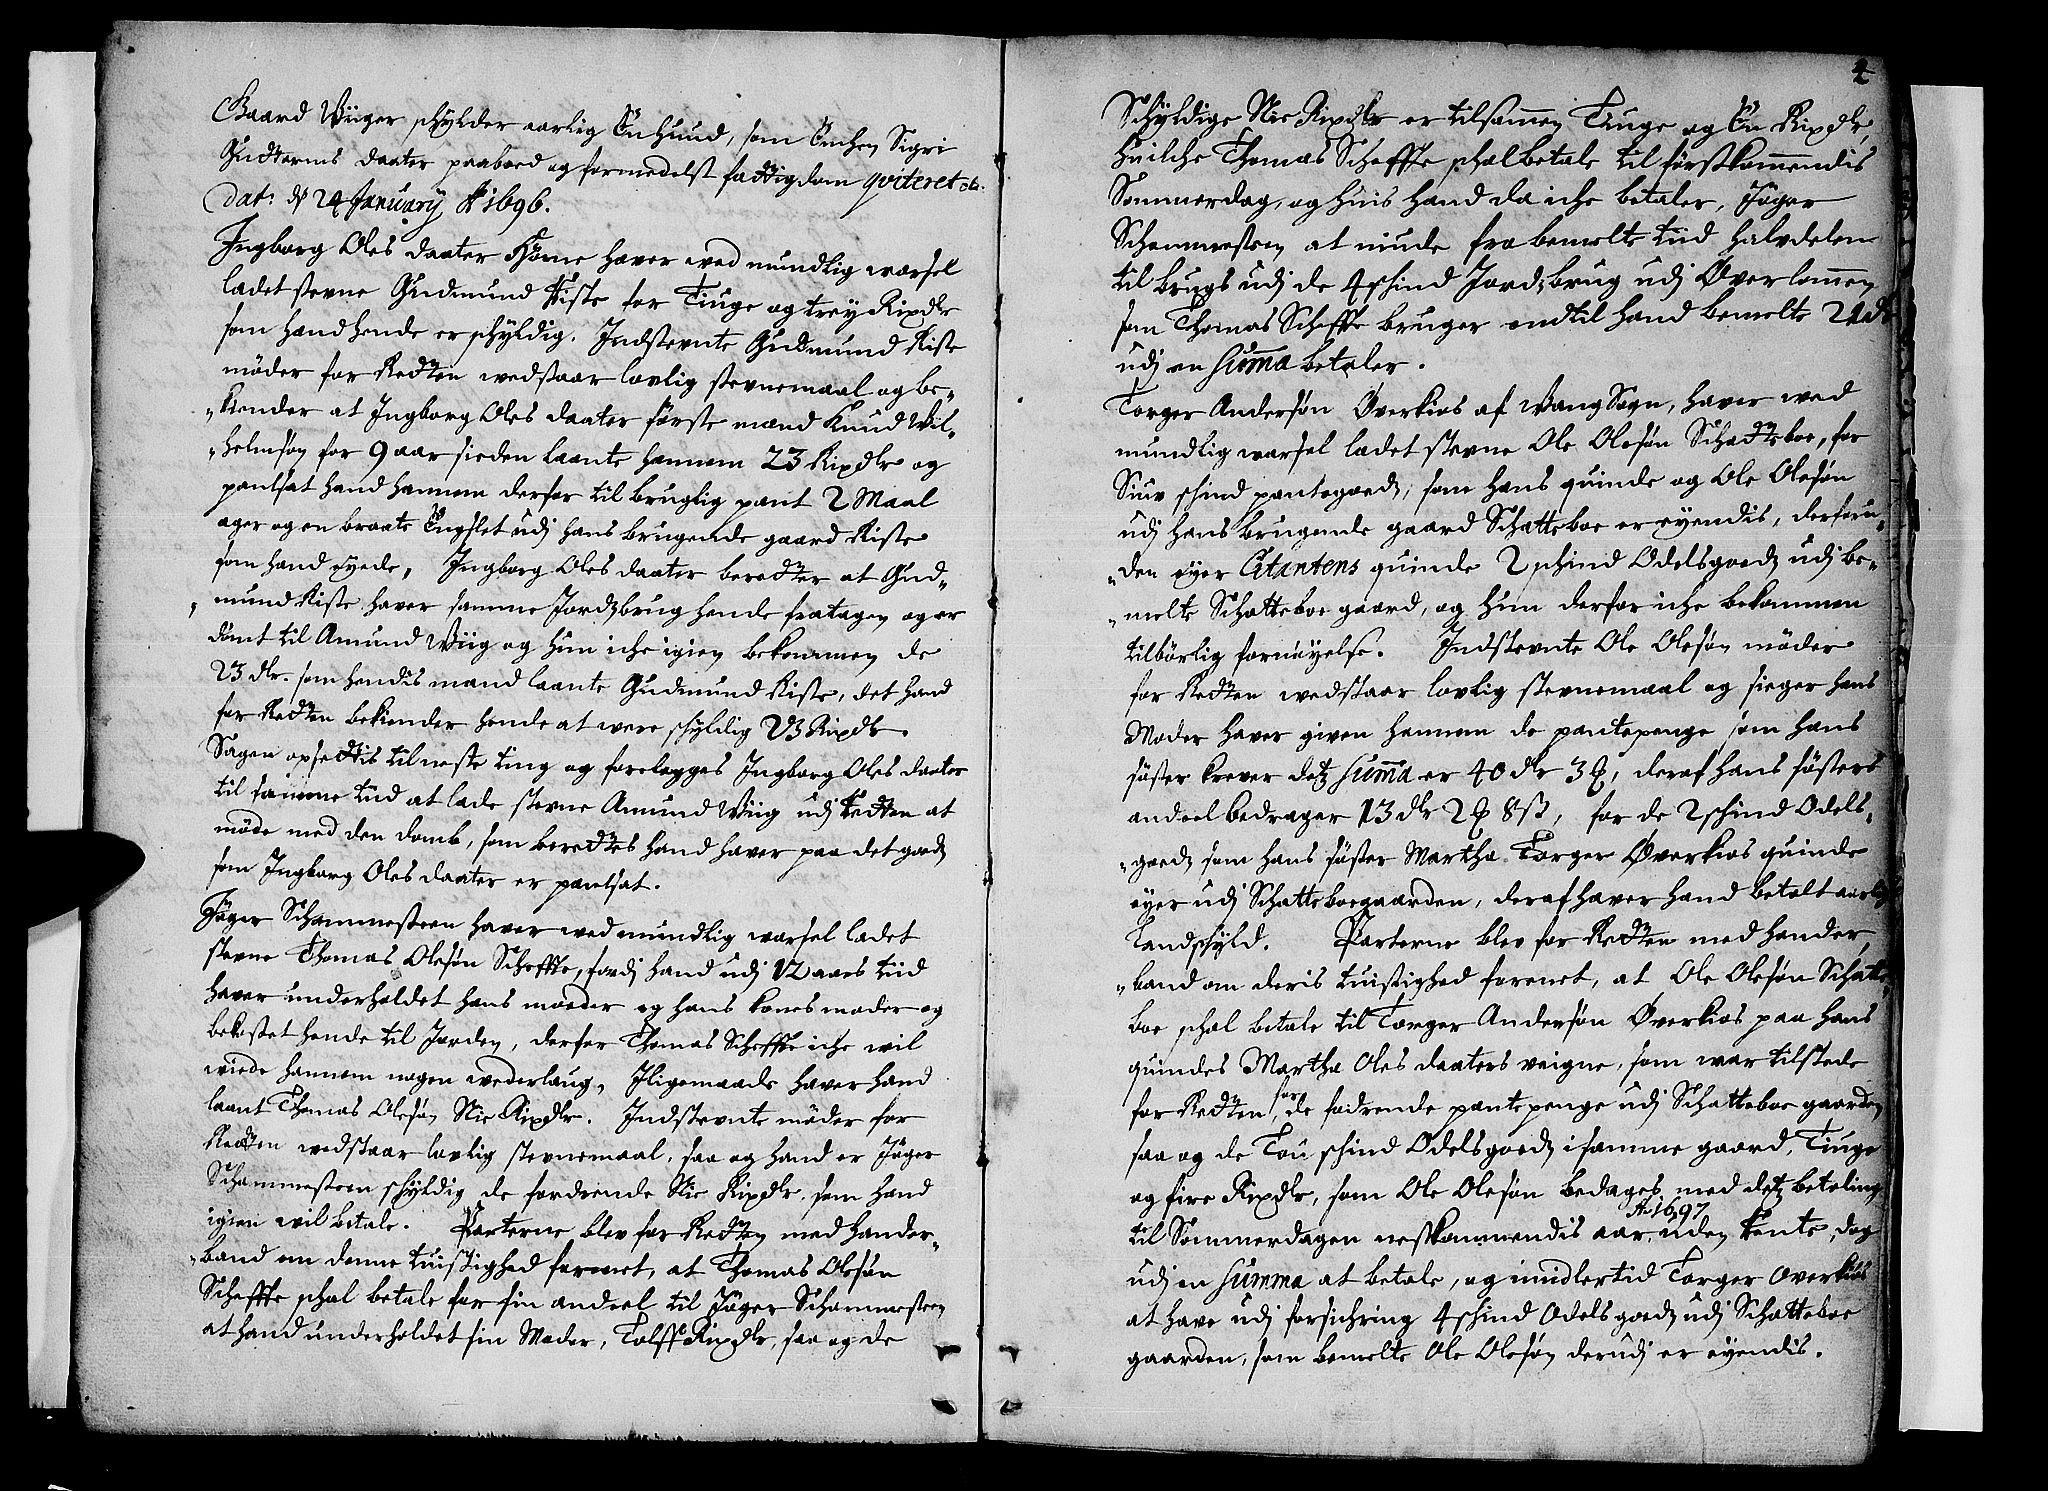 Gaard Wiiger schylder aarlig En huud, som Enchen Sigri
Gudtorms daater paaboed og formedelst fattigdom qviteret etc.
Dat: d 24 January Ao 1696.
Ingborg Oles daater Hiørne haver wed mundlig warsel
ladet stevne Gudmund Riste for Tiuge og trey Rixdlr
som hand hende er schyldig. Indstevnte Gudmund Riste
møder for Retten wedstaar lovlig stevnemaal og be-
-kiender at Ingborg Oles daater første mand Knud Wil-
-helmsøn for 9 aar sieden laante hannem 23 Rixdlr og
pantsat hand hannem derfor til bruglig pant 2 Maal
ager og en braate Engslet udj hans brugende gaard Riste
som hand eyede, Ingborg Oles daater beretter at Gud-
-mund Riste haver samme Jordzbrug hende fratagen og er
dømt til Amund Wiig og hun iche igien bekommen de
23 dlr. som hendis mand laante Gudmund Riste, det hand
for Retten bekiender hende at were schyldig 23 Rixdlr.
Sagen opsettis til neste ting og forelegges Ingborg Oles daater
til samme tiid at lade stevne Amund Wiig udj Retten at
møde med den domb, som berettes hand haver paa det goedz
som Ingborg Oles daater er pantsat.
Jøger Schammesteen haver wed mundlig warsel ladet
stevne Thomas Olesøn Scheffte, fordj hand udj 12 aars tiid
haver underholdet hans moeder og hans kones moder og
bekostet hende til Jorden, derfor Thomas Scheffte iche wil
wiede hannem nogen wederlaug, Iligemaade haver hand
laant Thomas Olesøn Nie Rixdlr. Indstevnte møder for
Retten wedstaar lovlig stevnemaal, saa og hand er Jøger
Schammesteen schyldig de fordrende Nie Rixdlr. som hand
igien wil betale. Parterne blev for Retten med hander-
-band om denne tuistighed forenet, at Thomas Olesøn
Scheffte schal betale for sin andeel til Jøger Schammesteen
at hand underholdet sin Moder, Tolff Rixdlr, saa og de
2
Schyldige Nie Rixdlr er tilsammen Tiuge og En Rixdlr,
huilche Thomas Scheffte schal betale til førstkommendis
Sommerdag, og huis hand da iche betaler, Jøger
Schammesteen at niude fra bemelte tiid halvdelen
til brugs udj de 4 schind Jordzbrug udj Øverlomen
som Thomas Scheffte bruger indtil hand bemelte 21 dlr
udj en Summa betaler.
Torger Andersøn Øverkios af Wang Sogn, haver wed
mundlig warsel ladet stevne Ole Olesøn Schatteboe, for
Siuv schind pantegoedz, som hans quinde og Ole Olesøn
udj hans brugende gaard Schatteboe er eyendis, derforu-
-den eyer Citantens quinde 2 schind Odelsgoedz udj be-
-melte Schatteboe gaard, og hun derfor iche bekommen
tilbørlig fornøyelse. Indstevnte Ole Olesøn møder
for Retten wedstaar lovlig stevnemaal og sieger hans
Moder haver given hannem de pantepenge som hans
søster krever detz Summa er 40 dlr 3 ß, deraf hans søsters
andeel bedrager 13 dlr 2 ß 8 ß, for de 2 schind Odels-
-goedz som hans søster Martha Torger Øverkios quinde
eyer udj Schatteboegaarden, deraf haver hand betalt aarlig
Landschyld. Parterne blev for Retten med hander
-band om deris tuistighed forenet, at Ole Olesøn Schatte-
boe schal betale til Torger Andersøn Øverkios paa hans
quindes Martha Oles daaters veigne, som war tilstede
for Retten for de fodrende pantepenge udj Schatteboe gaarden
saa og de Tou schind Odelsgoedz i samme gaard, Tiuge
og fire Rixdlr, som Ole Olesøn bedages med detz betaling
Ao 1697
til Sommerdagen nestkommendis aar uden Rente, dog
udj en Summa at betale, og imidlertid Torger Overkios
at have udj forsichring 4 schind Odelsgoedz udj Schatteboe
gaarden, som bemelte Ole Olesøn derudj er eyendis.